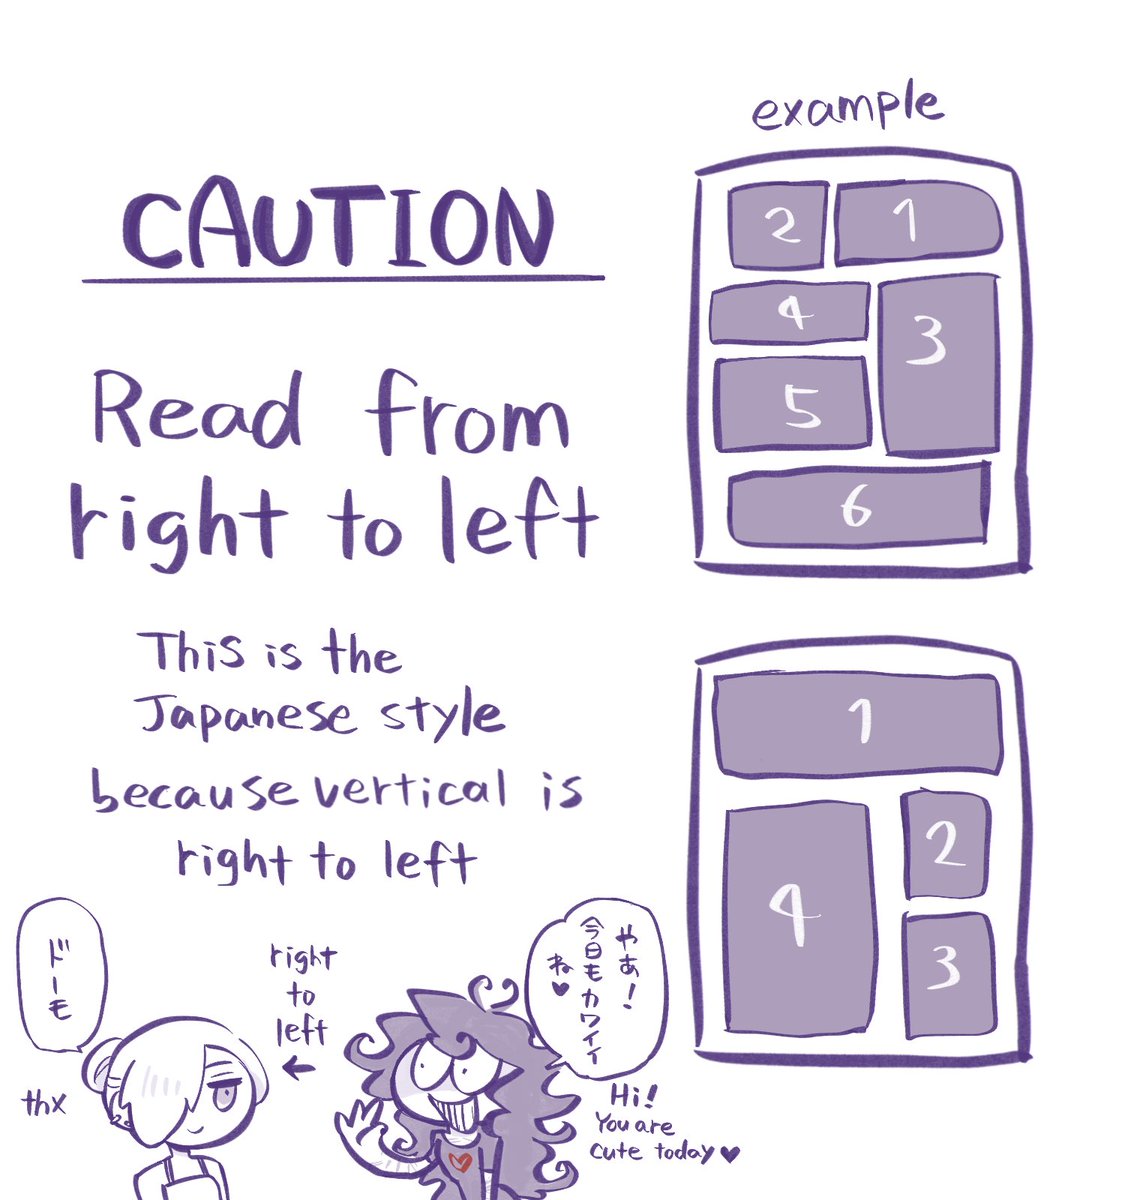 CAUTION
Read from
right to left
This is the
Japanese style
because vertical is
right to left
example
2 1
4 3
5
6
1
2
4
3
やあ!
今日もカワイイ
ね♥
Hi!
You are
cute today♥
right
to
left
←
ドーモ
thx